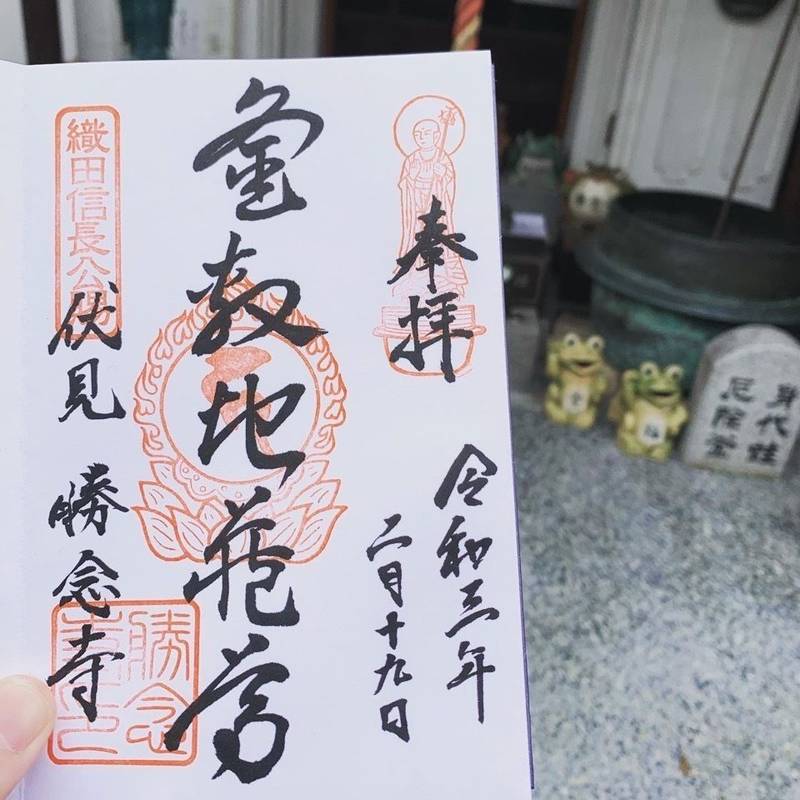 奉拝
令和三年
二月十九日
釜敷地蔵尊
織田信長公
伏見 勝念寺
勝念
身代
厄除釜